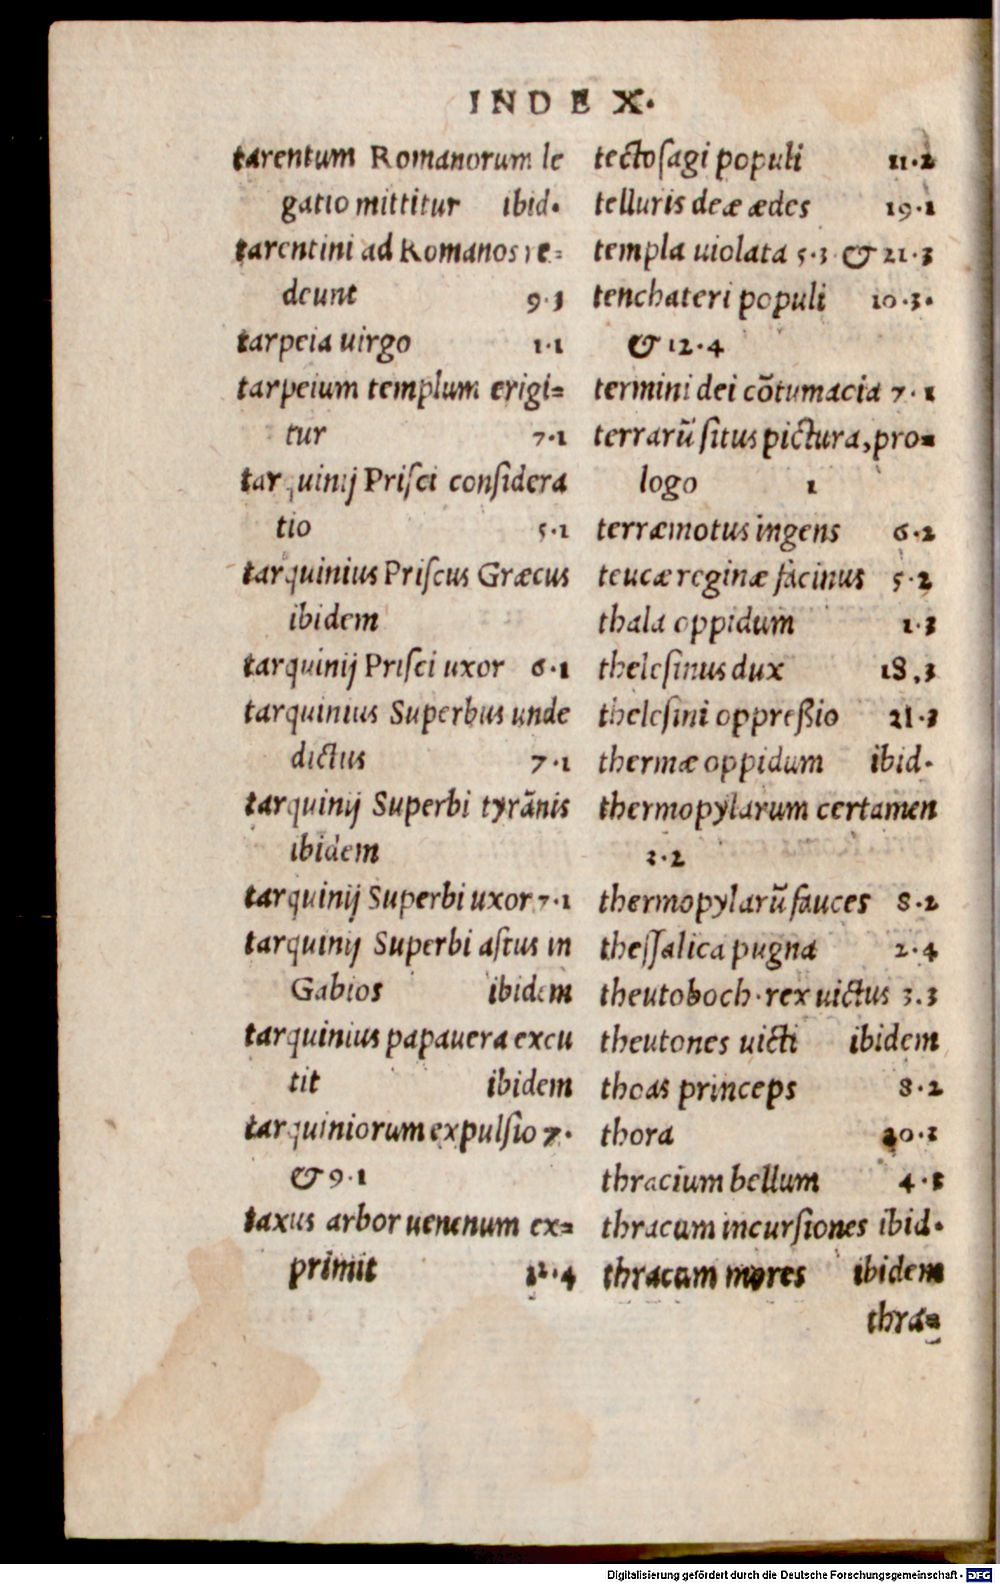 INDEX.
tarentum Romanorum le
gatio mittitur ibid.
tarentini ad Romanos re=
deunt 9·3
tarpeia uirgo 1·1
tarpeium templum erigi=
tur 7·1
tarquinij Prisci considera
tio 5·1
tarquinius Priscus Græcus
ibidem
tarquinij Prisci uxor 6·1
tarquinius Superbus unde
dictus 7·1
tarquinij Superbi tyrānis
ibidem
tarquinij Superbi uxor 7·1
tarquinij Superbi astus in
Gabios ibidem
tarquinius papauera excu
tit ibidem
tarquiniorum expulsio 7·
& 9·1
taxus arbor uenenum ex=
primit 12·4
tectosagi populi 11·2
telluris deæ ædes 19·1
templa uiolata 5·3 & 21·3
tenchateri populi 10·3·
& 12·4
termini dei cōtumacia 7·1
terrarū situs pictura, pro=
logo 1
terræmotus ingens 6·2
teucæ reginæ facinus 5·2
thala oppidum 1·3
thelesinus dux 18,3
thelesini oppreßio 21·3
thermæ oppidum ibid·
thermopylarum certamen
2·2
thermopylarū fauces 8·2
thessalica pugna 2·4
theutoboch·rex uictus 3.3
theutones uicti ibidem
thoas princeps 8·2
thora 20·2
thracium bellum 4·3
thracum incursiones ibid·
thracum mores ibidem
thra=
Digitalisierung gefördert durch die Deutsche Forschungsgemeinschaft - DFG